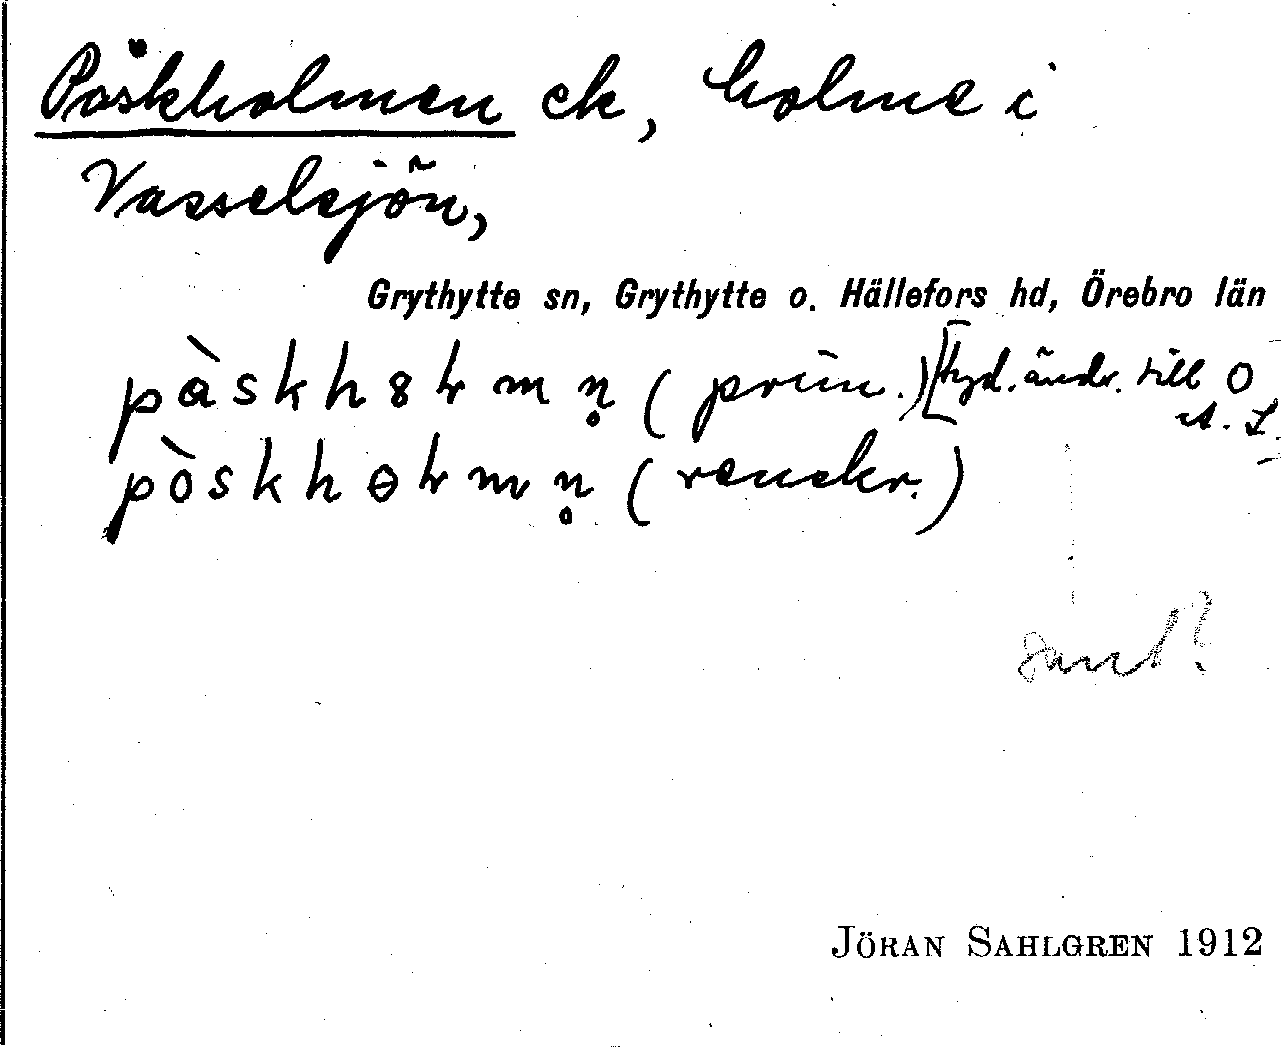 Påskholmen ek, holme i
Vasselsjön,
Grythytte sn, Grythytte o. Hällefors hd, Örebro län
pàskh8ɫmn̥ (prim.) [tyd. ändr. till o
A. L.]
pòskhɵɫmn̥ (renskr.)
JÖRAN SAHLGREN 1912